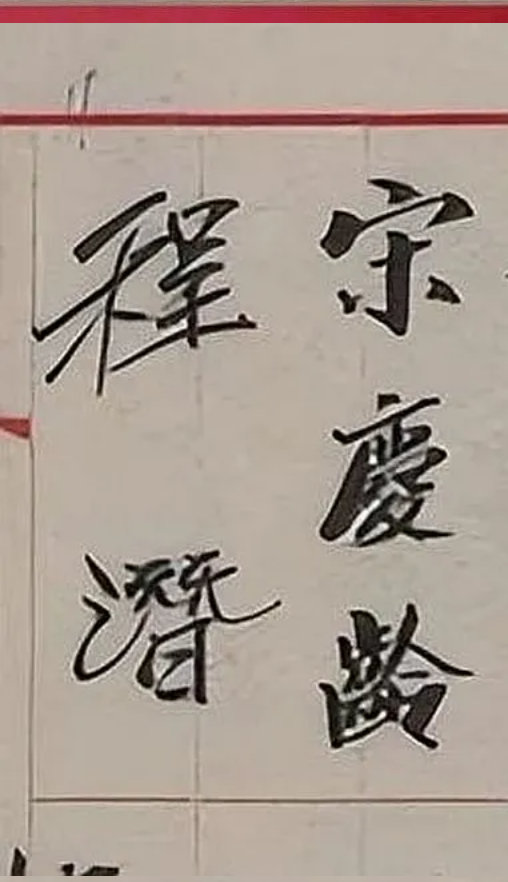 宋慶齡
程潛